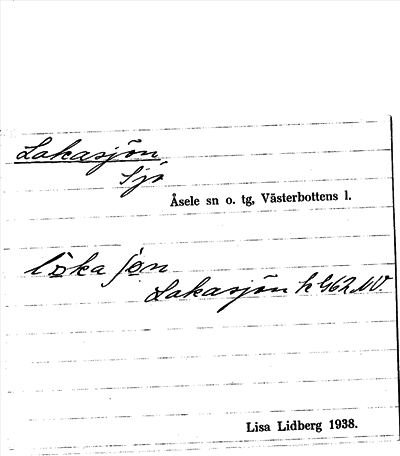 Lakasjön
Sjö
Åsele sn o. tg, Västerbottens l.
Lakasjön k 462 NV.
Lisa Lidberg 1938.